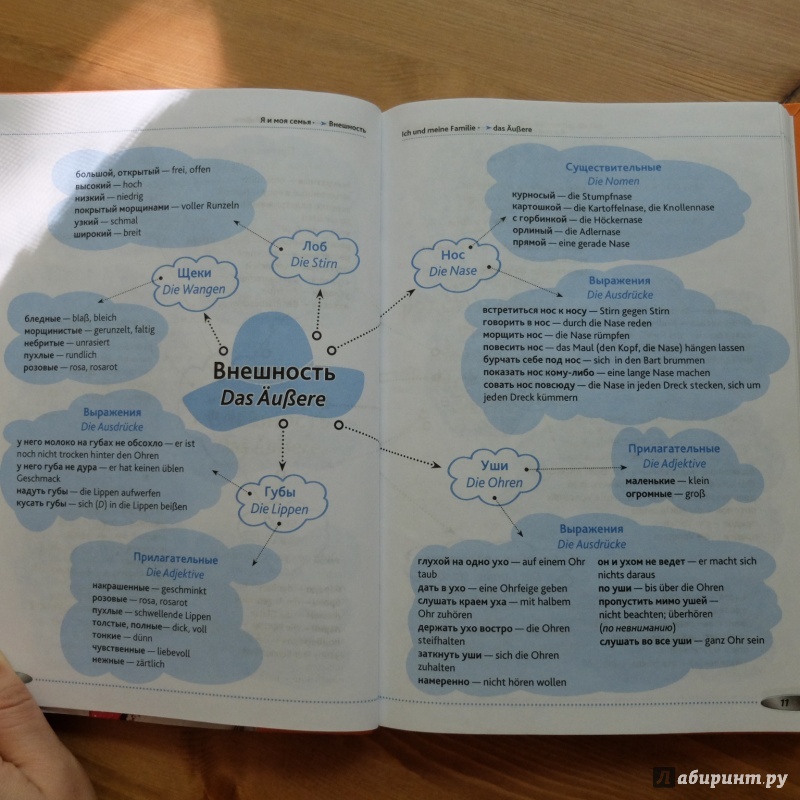 Я и моя семья · ➢ Внешность
большой, открытый — frei, offen
высокий — hoch
низкий — niedrig
покрытый морщинами — voller Runzeln
узкий — schmal
широкий — breit
Лоб
Die Stirn
Щеки
Die Wangen
бледные — blaß, bleich
морщинистые — gerunzelt, faltig
небритые — unrasiert
пухлые — rundlich
розовые — rosa, rosarot
Внешность
Das Äußere
Выражения
Die Ausdrücke
у него молоко на губах не обсохло — er ist
noch nicht trocken hinter den Ohren
у него губа не дура — er hat keinen üblen
Geschmack
надуть губы — die Lippen aufwerfen
кусать губы — sich (D) in die Lippen beißen
Губы
Die Lippen
Прилагательные
Die Adjektive
накрашенные — geschminkt
розовые — rosa, rosarot
пухлые — schwellende Lippen
толстые, полные— dick, voll
тонкие — dünn
чувственные — liebevoll
нежные — zärtlich
Ich und meine Familie · ➢ das Äußere
Существительные
Die Nomen
курносый — die Stumpfnase
картошкой — die Kartoffelnase, die Knollennase
с горбинкой — die Höckernase
орлиный — die Adlernase
прямой — eine gerade Nase
Нос
Die Nase
Выражения
Die Ausdrücke
встретиться нос к носу — Stirn gegen Stirn
говорить в нос — durch die Nase reden
морщить нос — die Nase rümpfen
повесить нос — das Maul (den Kopf, die Nase) hängen lassen
бурчать себе под нос — sich in den Bart brummen
показать нос кому-либо — eine lange Nase machen
совать нос повсюду — die Nase in jeden Dreck stecken, sich um
jeden Dreck kümmern
Уши
Die Ohren
Прилагательные
Die Adjektive
маленькие — klein
огромные — groß
Выражения
Die Ausdrücke
глухой на одно ухо — auf einem Ohr
taub
дать в ухо — eine Ohrfeige geben
слушать краем уха — mit halbem
Ohr zuhören
держать ухо востро — die Ohren
steifhalten
заткнуть уши — sich die Ohren
zuhalten
намеренно — nicht hören wollen
он и ухом не ведет — er macht sich
nichts daraus
по уши — bis über die Ohren
пропустить мимо ушей —
nicht beachten; überhören
(по невниманию)
слушать во все уши — ganz Ohr sein
11
Лабиринт.ру